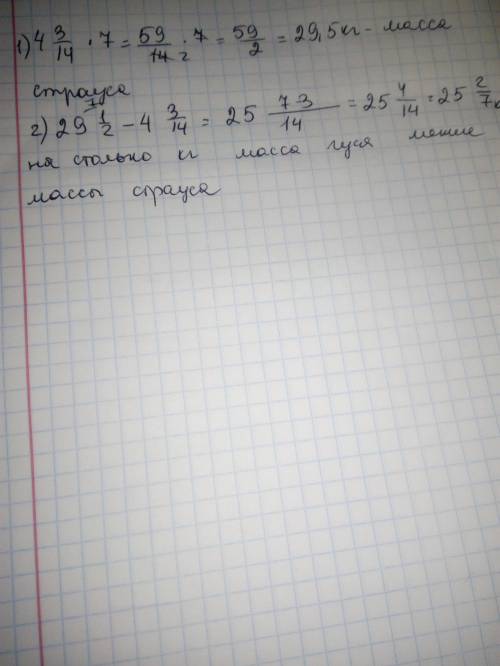 1) 4 3/14 · 7 = 59/14 2 · 7 = 59/2 = 29,5 кг - масса
страуса
2) 29 1/2 7 - 4 3/14 = 25 7-3/14 = 25 4/14 = 25 2/7 к
на столько кг масса гуся меньше
массы страуса